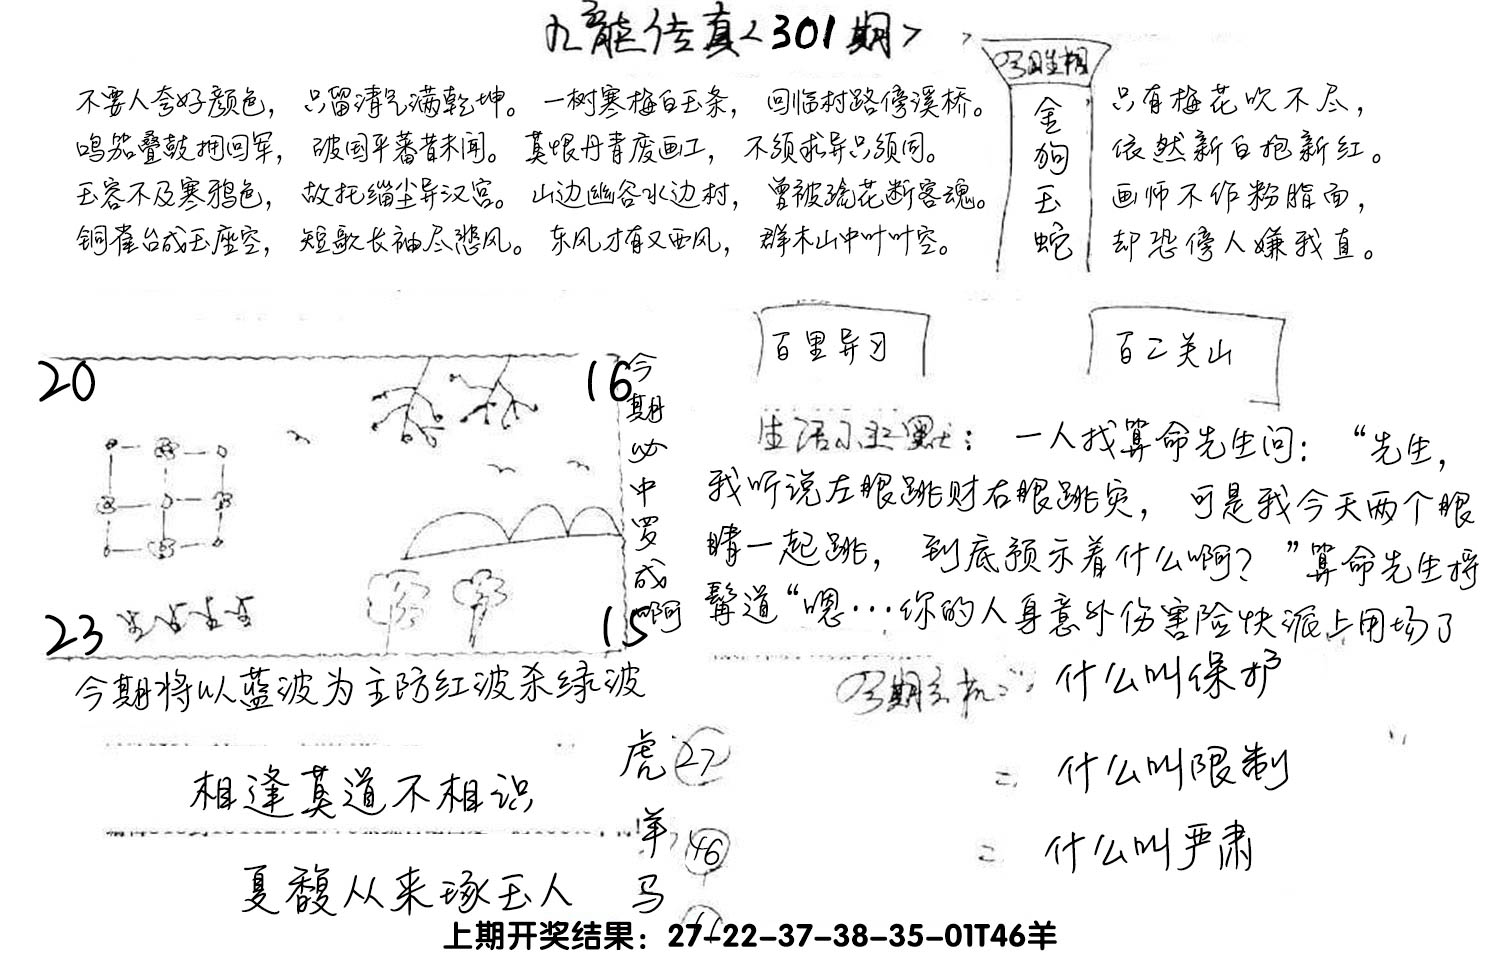 九龙传真<301期>
不要人夸好颜色，只留清气满乾坤。一树寒梅白玉条，回临村路傍溪桥。
鸣笳叠鼓拥回军，破国平蕃昔未闻。莫恨丹青废画工，不须求异只须同。
玉容不及寒鸦色，故托缁尘异汉宫。山边幽谷水边村，曾被疏花断客魂。
铜雀台成玉座空，短歌长袖尽悲风。东风才有又西风，群木山中叶叶空。
今日生相
金狗玉蛇
只有梅花吹不尽，
依然新白抱新红。
画师不作粉脂面，
却恐傍人嫌我直。
20
16
23
15
今期必中罗成啊
今期将以蓝波为主防红波杀绿波
百里异习
百二关山
生活小幽默：一人找算命先生问：“先生，
我听说左眼跳财右眼跳灾，可是我今天两个眼
睛一起跳，到底预示着什么啊？”算命先生捋
髯道“嗯…你的人身意外伤害险快派上用场了
今期玄机：什么叫保护
什么叫限制
什么叫严肃
相逢莫道不相识
夏馥从来琢玉人
虎 27
羊 46
马
上期开奖结果：27-22-37-38-35-01T46羊